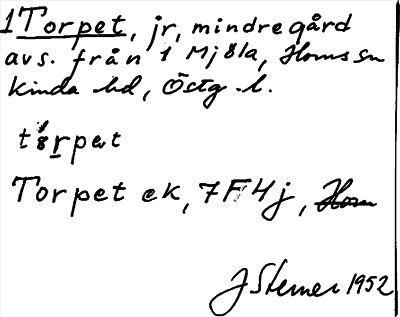 1 Torpet, jr, mindre gård
avs. från 1 Mjölsa, Horns sn
Kinda hd, Östg. l.
tɷrpet
Torpet ek, 7F4j, Horn
J Sterner 1952